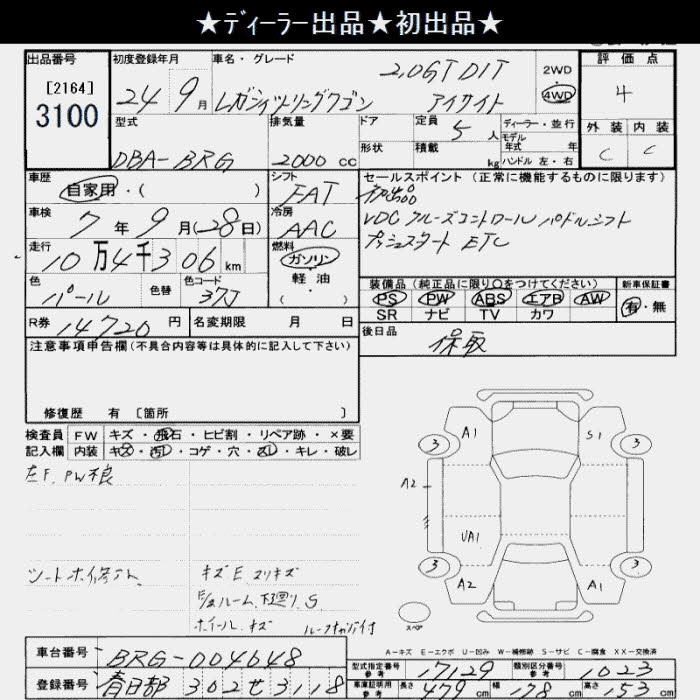 ★ディーラー出品★初出品★
出品番号
[2164]
3100
初度登録年月
24年9月
車名・グレード
レガシィツーリングワゴン
2.0GT DIT
アイサイト
2WD
4WD
評価点
4
外装 内装
C C
型式
DBA-BRG
排気量
2000 cc
ドア
形状
定員
5人
積載
kg
ディーラー・並行
モデル
年式 年
ハンドル 左・右
車歴
自家用・( )
シフト
FAT
セールスポイント (正常に機能するものに限ります)
初出品
VDC クルーズコントロール パドルシフト
プッシュスタート ETC
車検
7年9月(28日)
冷房
AAC
走行
10万4千306 km
燃料
ガソリン
軽油
( )
色
パール
色替
色コード
37J
装備品 (純正品に限り○をつけてください)
PS PW ABS エアB AW
SR ナビ TV カワ
新車保証書
有・無
R券 14720円
名変期限 月 日
後日品
保取
注意事項申告欄(不具合内容等は具体的に記入して下さい)
修復歴 有 [箇所 ]
検査員 FW キズ・飛石・ヒビ割・リペア跡・×要
記入欄 内装 キズ・汚れ・コゲ・穴・スレ・キレ・破レ
左F.PW不良
シートホ修アト
キズE.スリキズ
E/gルーム.下廻り.S
ホイール.キズ
ルーフキャリア付
3 A1 S1 3
A2
UA1
3 A2 A1 3
スペア
A-キズ E-エクボ U-凹み W-補修跡 S-サビ C-腐食 XX-交換済
車台番号 BRG-004648
登録番号 春日部 302せ3118
型式指定番号 参考 17129
類別区分番号 参考 1023
車庫証明用 参考 長さ 479cm 幅 178cm 高さ 153cm